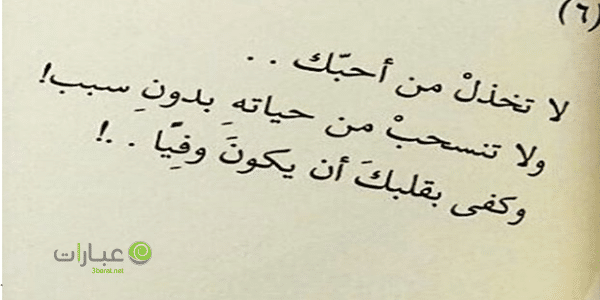 (٦)
لا تخذلْ من أحبّك . .
ولا تنسحبْ من حياتهِ بدونِ سبب!
وكفى بقلبكَ أن يكونَ وفِيًّا . .!
عبارات
3barat.net